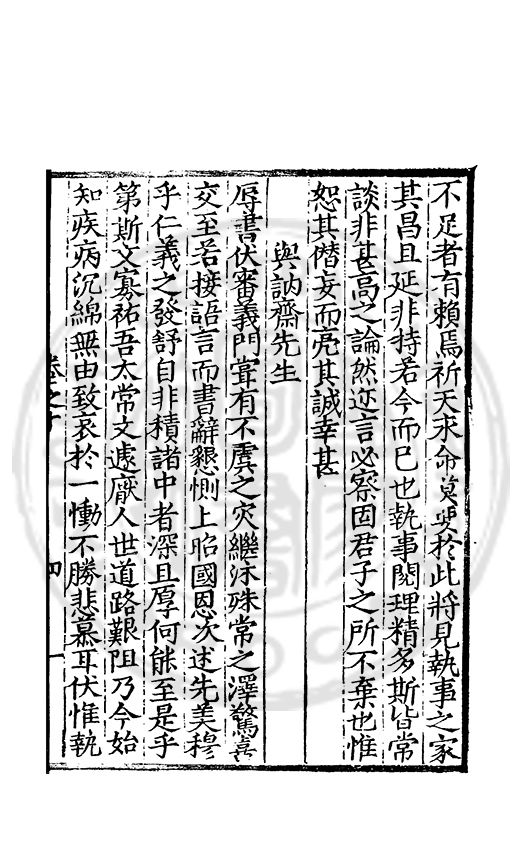 不足者有賴焉祈天求命莫要於此將見執事之家
其昌且延非特若今而已也執事閱理精多斯皆常
談非甚高之論然迩言必察固君子之所不棄也惟
恕其僭妄而亮其誠幸甚
與訥齋先生
辱書伏審義門甞有不虞之灾繼沐殊常之澤驚喜
交至若接語言而書辭懇惻上昭國恩次述先美穆
乎仁義之發舒自非積諸中者深且厚何能至是乎
第斯文寡祐吾太常丈遽厭人世道路艱阻乃今始
知疾病沉綿無由致哀於一慟不勝悲慕耳伏惟執